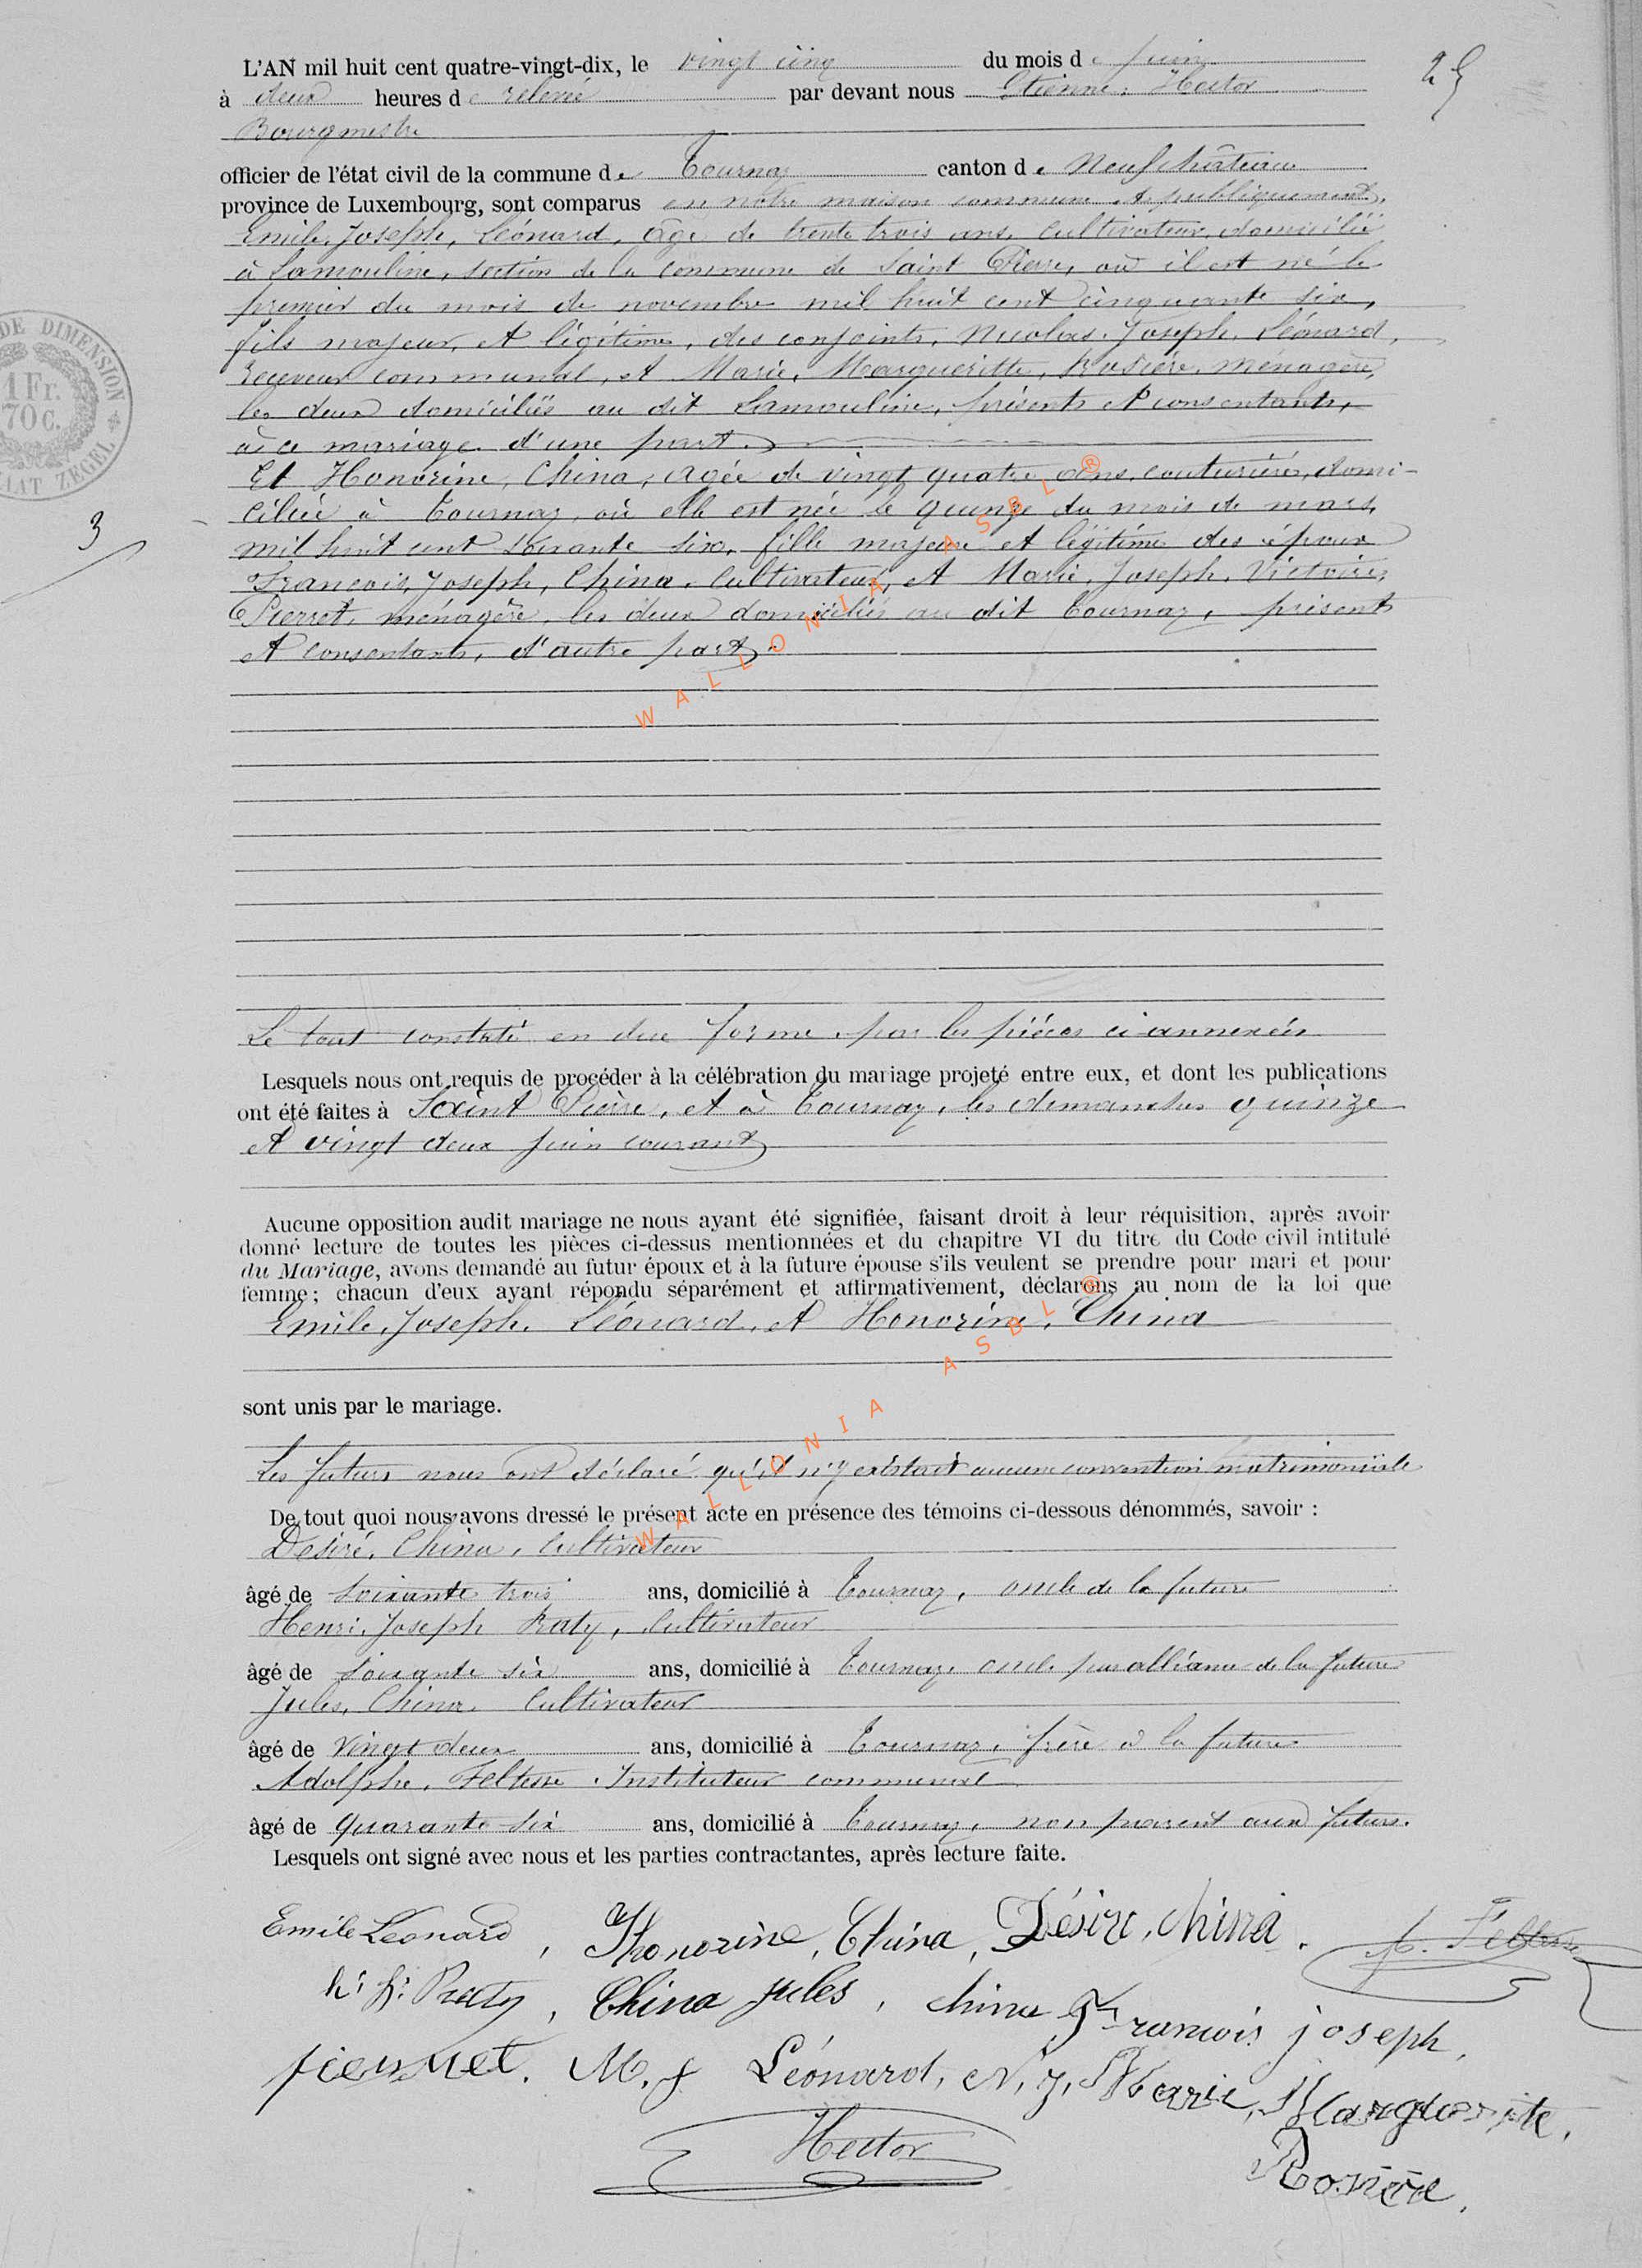 L'AN mil huit cent quatre-vingt-dix, le vingt cinq du mois de juin
25
à deux heures de relevée par devant nous Etienne, Hector
Bourgmestre
officier de l'état civil de la commune de Tournay canton de Neufchâteau
province de Luxembourg, sont comparus en notre maison commune et publiquement,
Emile, Joseph, Léonard, âgé de trente trois ans, cultivateur, domicilié
à Lamouline, section de la commune de Saint Pierre, où il est né le
premier du mois de novembre mil huit cent cinquante six,
fils majeur, et légitime, des conjoints, Nicolas, Joseph, Léonard,
receveur communal, et Marie, Margueritte, Rosière, ménagère,
les deux domiciliés au dit Lamouline, présents et consentants,
à ce mariage d'une part.
Et Honorine, China, agée de vingt quatre ans, couturière, domi-
ciliée à Tournay, où elle est née le quinze du mois de mars,
mil huit cent soixante six, fille majeure et légitime des époux
François, Joseph, China, cultivateur, et Marie, Joseph, Victoire,
Pierret, ménagère, les deux domiciliés au dit Tournay, présents
et consentants, d'autre part.
DE DIMENSION
1 Fr.
70 C.
ZEGEL
3
WALLONIA ASBL ®
Le tout constaté en due forme, par les pièces ci annexées
Lesquels nous ont requis de procéder à la célébration du mariage projeté entre eux, et dont les publications
ont été faites à Saint Pierre, et à Tournay, les dimanches quinze
et vingt deux juin courant
Aucune opposition audit mariage ne nous ayant été signifiée, faisant droit à leur réquisition, après avoir
donné lecture de toutes les pièces ci-dessus mentionnées et du chapitre VI du titre du Code civil intitulé
du Mariage, avons demandé au futur époux et à la future épouse s'ils veulent se prendre pour mari et pour
femme; chacun d'eux ayant répondu séparément et affirmativement, déclarons au nom de la loi que
Emile, Joseph, Léonard, et Honorine, China
sont unis par le mariage.
WALLONIA ASBL ®
Les futurs nous ont déclaré qu'il n'y existait aucune convention matrimoniale
De tout quoi nous avons dressé le présent acte en présence des témoins ci-dessous dénommés, savoir :
Désiré, China, cultivateur
âgé de soixante trois ans, domicilié à Tournay, oncle de la future
Henri, Joseph Raty, cultivateur
âgé de soixante six ans, domicilié à Tournay, oncle par alliance de la future
Jules, China, cultivateur
âgé de vingt deux ans, domicilié à Tournay, frère à la future
Adolphe, Feltesse, Instituteur communal
âgé de quarante six ans, domicilié à Tournay, non parent aux futurs.
Lesquels ont signé avec nous et les parties contractantes, après lecture faite.
Emile Léonard, Honorine, China, Désiré, China. A. Feltesse
h. j. Raty, China Jules, China François joseph,
pierret. M. J Léonard, N, J, Marie, Marguerite,
Hector
Rosière,